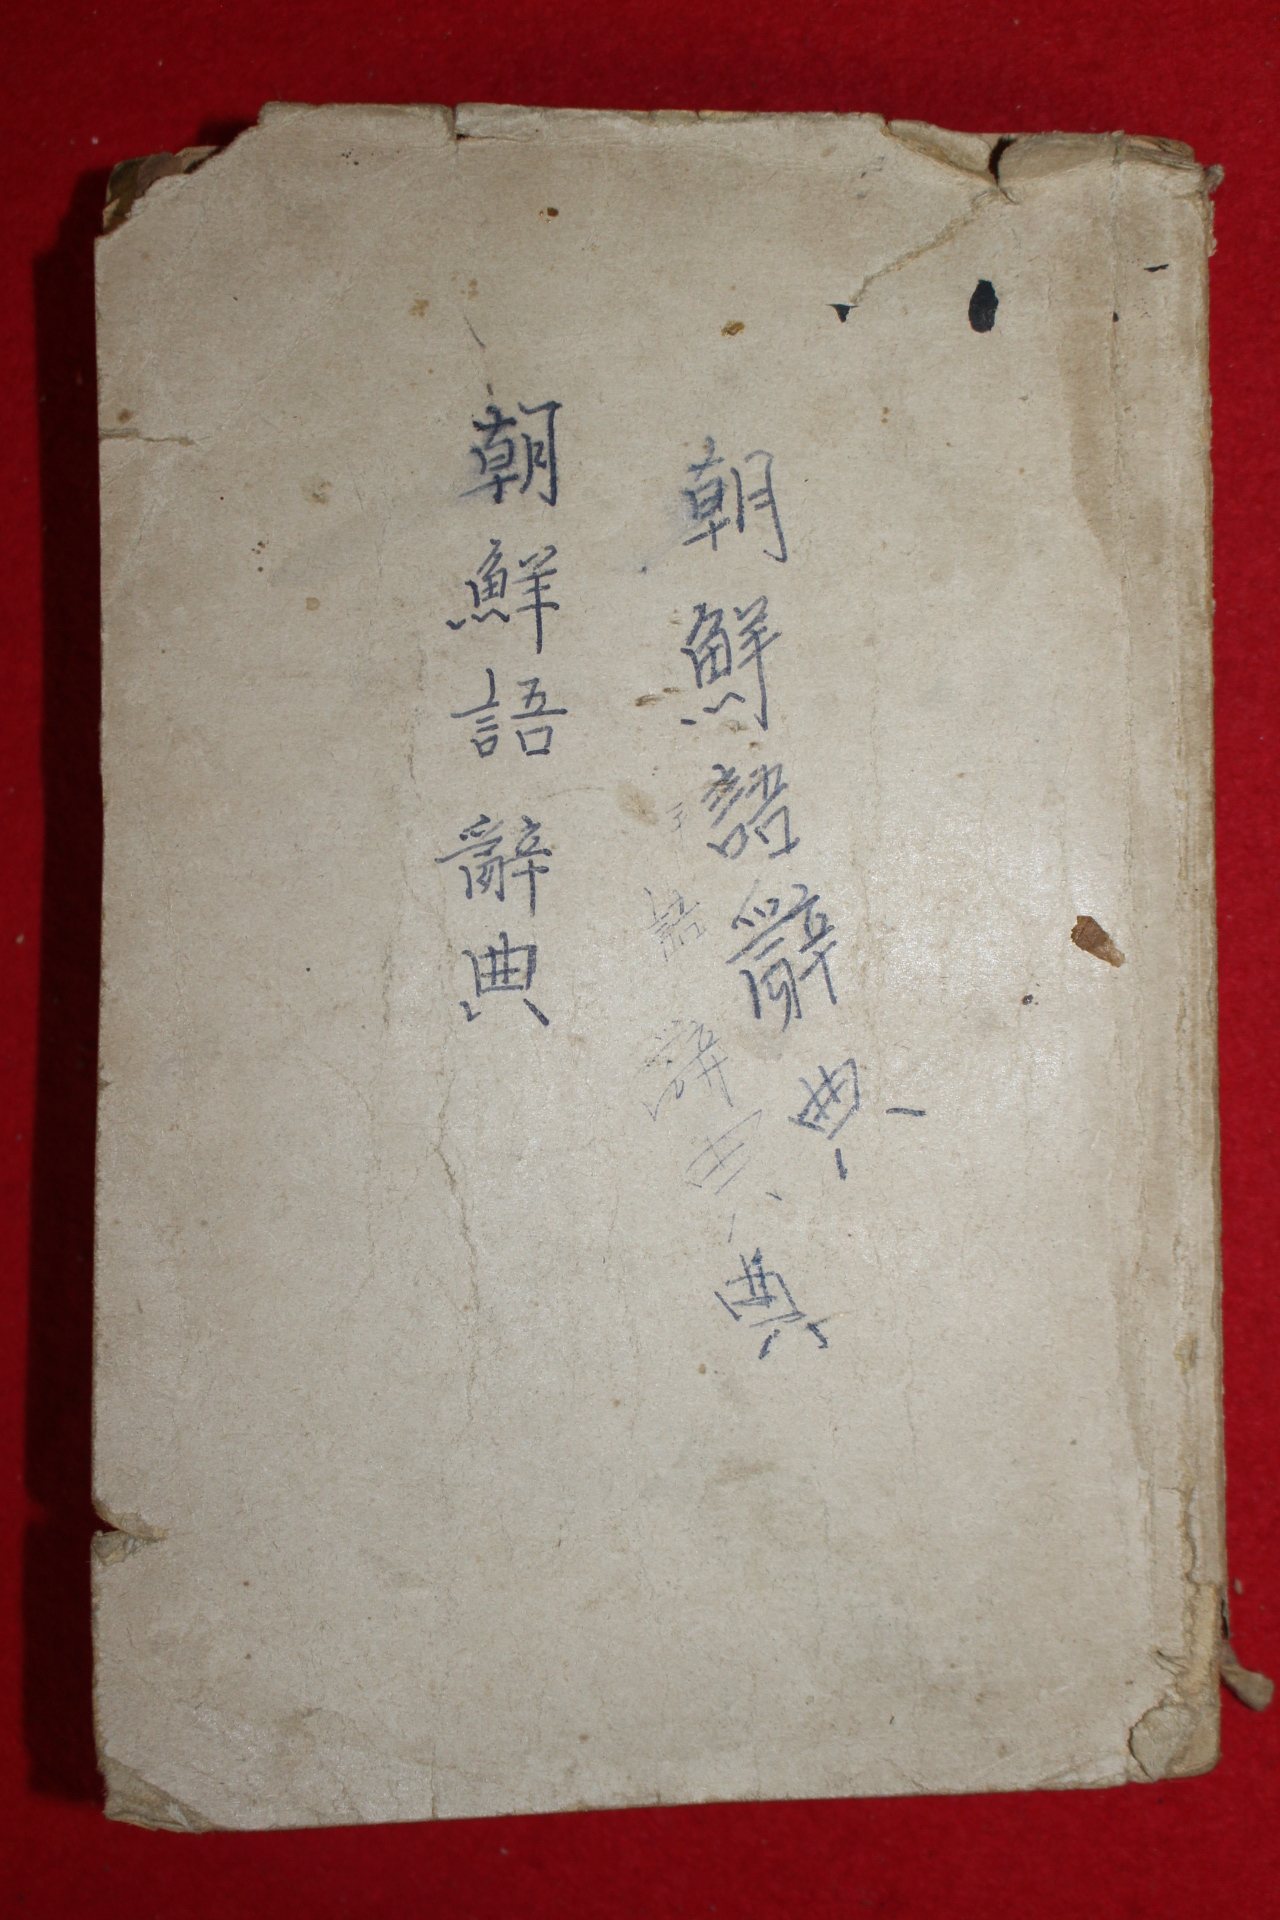 朝鮮語辭典
典
語辭典
朝鮮語辭典